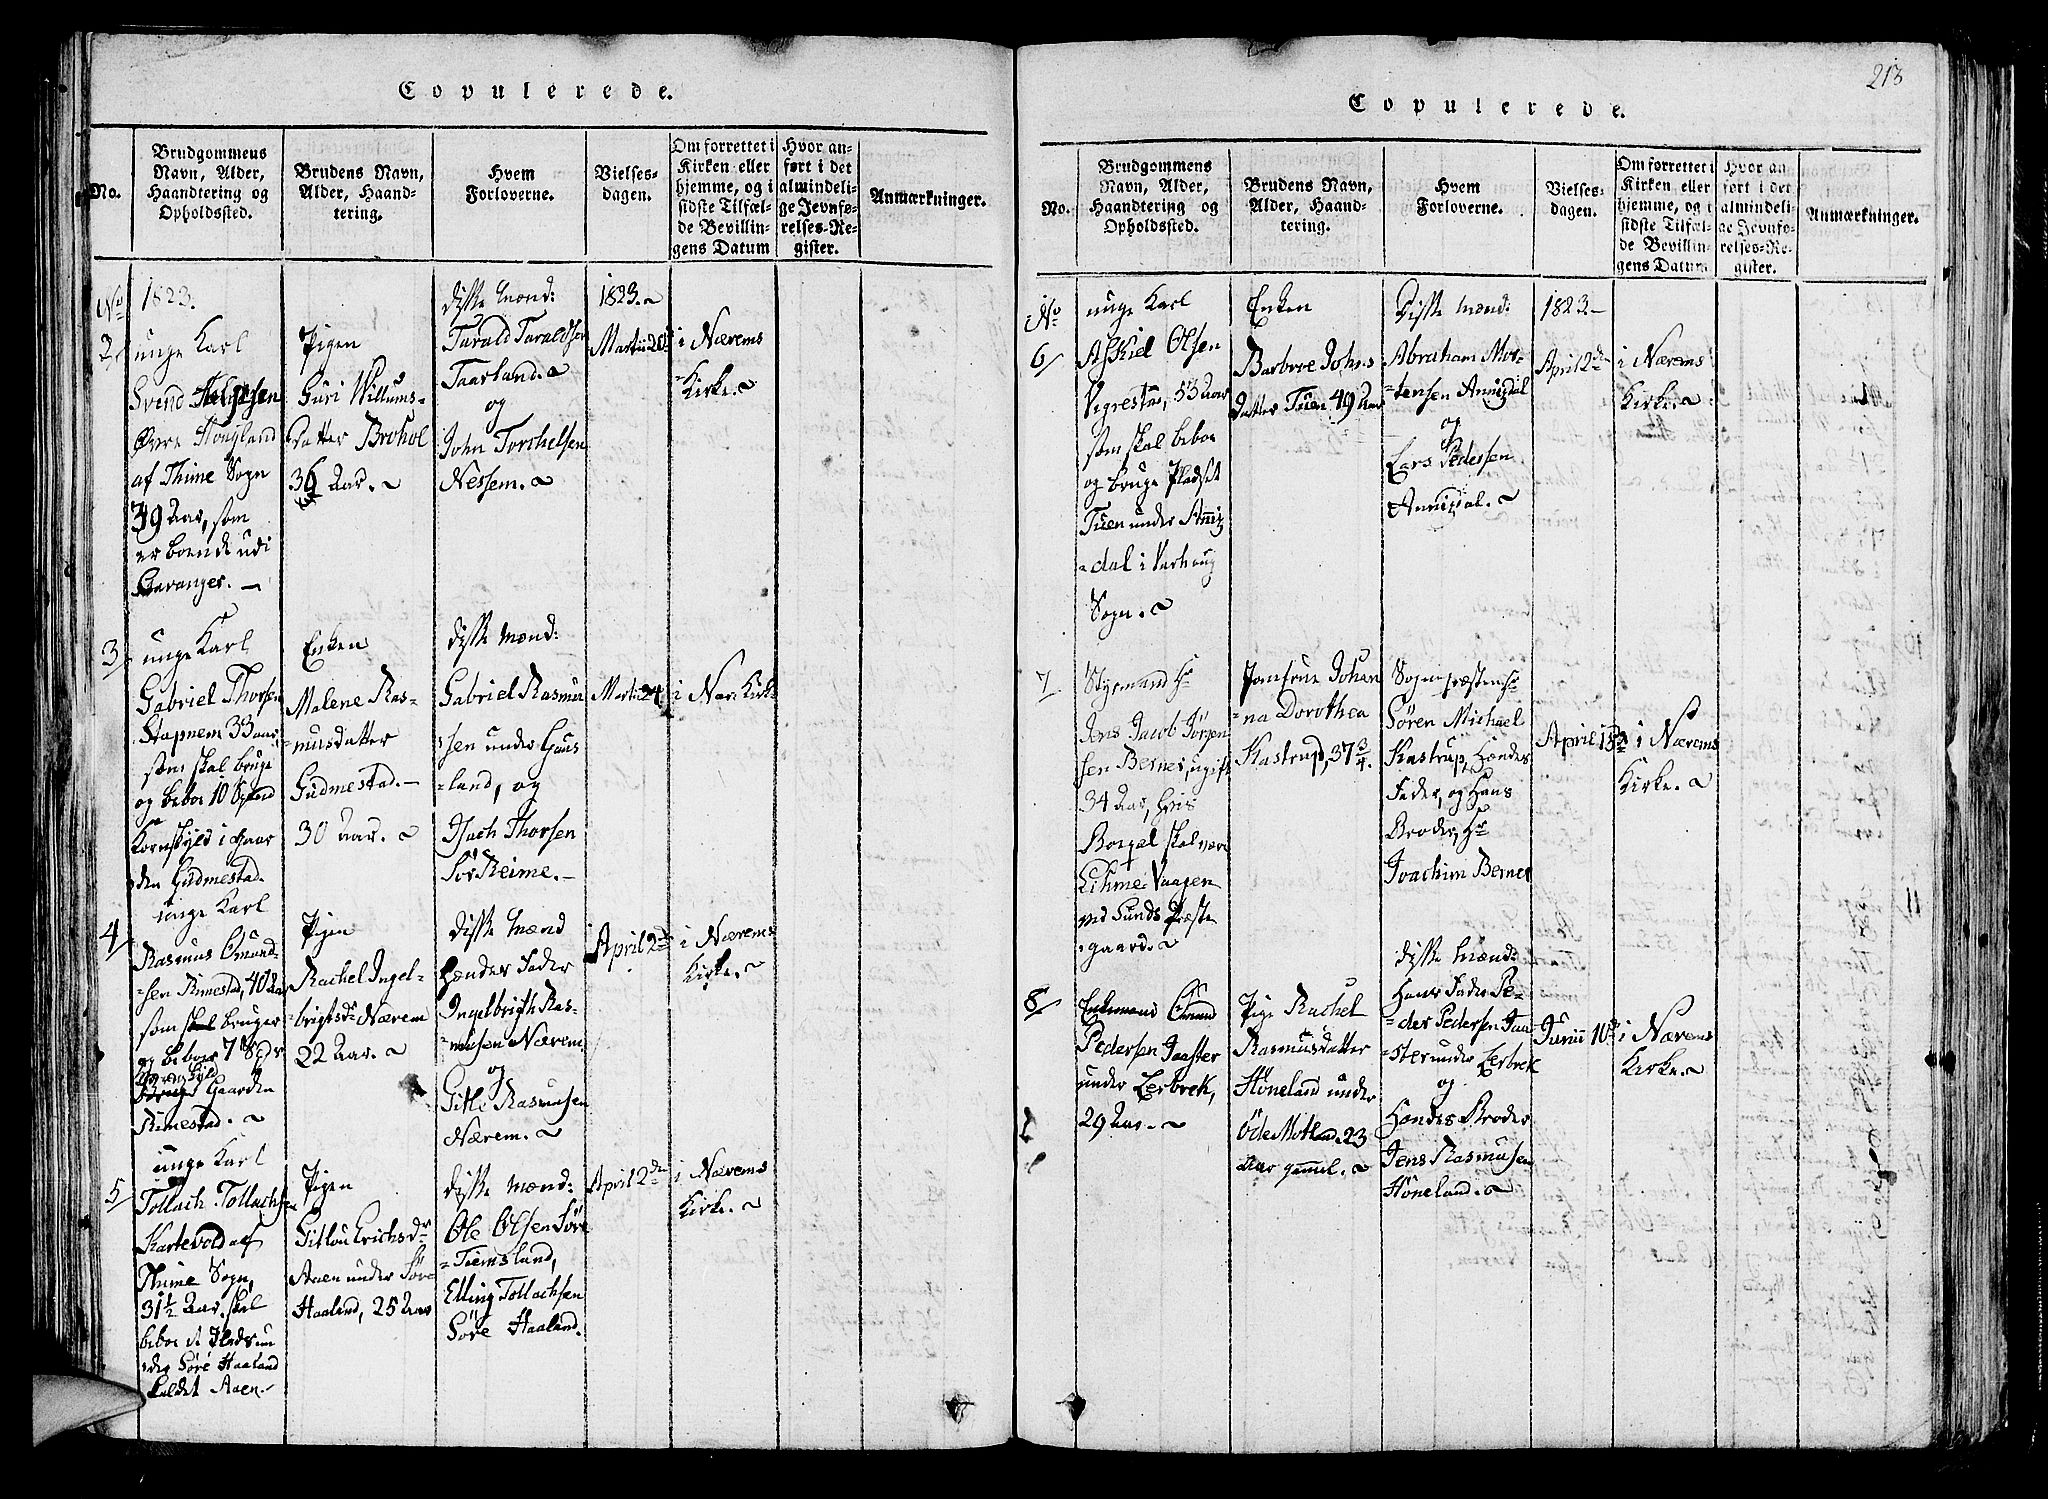 Copulerede.
No.
Brudgommens
Navn, Alder,
Haandtering og
Opholdssted.
Brudens Navn,
Alder, Haand-
tering.
Hvem
Forloverne.
Vielses-
dagen.
Om forrettet i
Kirken eller
hjemme, og i
sidste Tilfæl-
de Bevillin-
gens Datum
Hvor an-
ført i det
almindeli-
ge Jevnfø-
relses-Re-
gister.
Anmærkninger.
No
1823.
2/
unge Karl
Svend Helgesen
Øvre Høyland
af Thime Sogn
39 Aar, som
er boende udi
Stavanger. —
Pigen
Guri Willums-
Datter Brohol
36 Aar.
Disse Mænd:
Tarald Taraldsen
Taarland.
og
John Torchelsen
Nessem.
1823.
Martii 20de
i Nærems
Kirke.
3/
unge Karl
Gabriel Thorsen
Stapnem 33 aar
som skal bruge
og beboe 10 Spand
Kornskyld i Gaar
den Gudmestad.
Enken
Malene Ras-
musdatter
Gudmestad. —
30 Aar.
Disse Mænd:
Gabriel Rasmu
sen under Haus
land, og
Isach Thorsen
Sør Reime. —
Martii 24
i Nær. Kirke
4/
unge Karl
Rasmus Omund-
sen Rimestad, 40 Aar
som skal bruger
og beboer 7 Spdr
Gaarden
Rimestad.
Pigen
Rachel Ingel-
brigtsdr Nærem
22 Aar.
Disse Mænd
hendes Fader
Ingelbrigth Ras-
musen Nærem.
og
Gitle Rasmusen
Nærem.
April 2den
i Nærems
Kirke.
5/
unge Karl
Tollach Tollachsen
Kartevold af
Thime Sogn,
31½ Aar, skal
beboe et Plads un
der Søre Haaland
kaldet Aaen.
Pigen
Sitlou Erichsdr
Aaen under Sør-
Haaland, 25 Aar
Disse Mænd:
Ole Olsen Søre
Tiemsland,
Elling Tollachsen
Søre Haaland.
April 2den
i Nærems
Kirke.
213
Copulerede.
No.
Brudgommens
Navn, Alder,
Haandtering og
Opholdssted.
Brudens Navn,
Alder, Haand-
tering.
Hvem
Forloverne.
Vielses-
dagen.
Om forrettet i
Kirken eller
hjemme, og i
sidste Tilfæl-
de Bevillin-
gens Datum
Hvor an
ført i det
almindeli-
ge Jevnfø-
relses-Re-
gister.
Anmærkninger.
No
6/
unge Karl
Askiel Olsen
Vigrestad, 53 aar
som skal beboe
og bruge Pladset
Tuen under Anniz
dal i Varhoug
Sogn.
Enken
Barbroe Johns
datter Tuen 49 Aar
Disse Mænd:
Abraham Mor-
tensen Annisdal
og
Lars Pedersen
Annisdal.
1823. —
April 2den
i Nærems
Kirke.
7/
Styrmand Hr
Jens Jacob Jørgen
sen Berner, ugift
34 Aar, hvis
Boepæl skal være
Eihme-Vaagen
ved Sunds Præste
gaard.
Jomfrue Johan
na Dorothea
Kastrup, 37¾.
Sognepræsten Hr
Søren Michael
Kastrup, hendes
Fader, og hans
Broder, Hr
Joachim Berner
April 15de
i Nærems
Kirke.
8/
Enkemand Omund
Pedersen Taaster
under Lerbrek,
29 Aar.
Pige Rachel
Rasmusdatter
Høneland under
Øde Motland 23
Aar gammel.
Disse Mænd:
hans Fader Pe-
der Pedersen Taa-
ster under Lerbrek
og
hendes Broder
Jens Rasmusen
Høneland.
Junii 10de
i Nærems
Kirke.